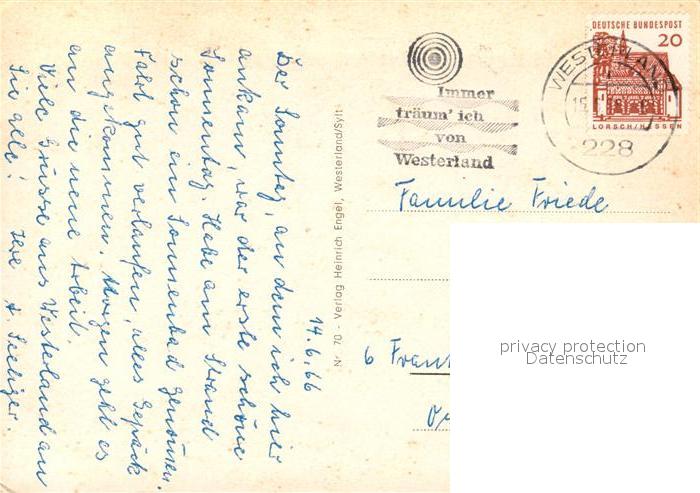 14.6.66
Der Sonntag, an dem ich hier
ankam, war der erste schöne
Sonnentag. Habe am Strand
schon ein Sonnenbad genommen.
Fahrt gut verlaufen, alles Gepäck
angekommen. Morgen geht es
an die neue Arbeit.
Viele Grüsse aus Westerland an
Sie alle! Ihre A. Seeliger.
Nr 70 - Verlag Heinrich Engel, Westerland/Sylt
Immer
träum' ich
von
Westerland
WESTERLAND
15.
228
DEUTSCHE BUNDESPOST
20
LORSCH/HESSEN
Familie Friede
6 Frank
privacy protection
Datenschutz